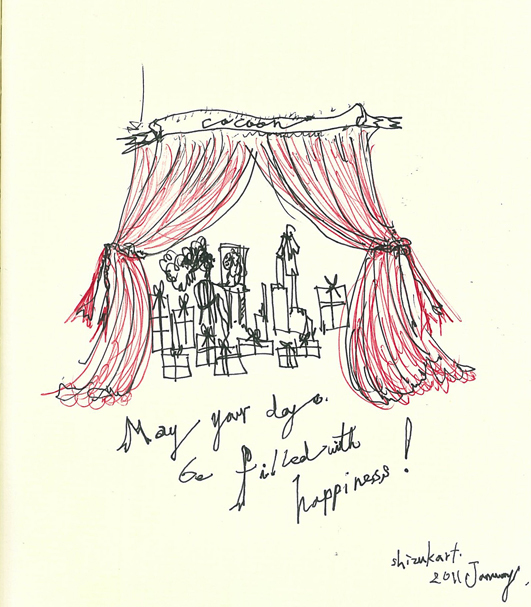 cocoon
May your days.
be filled with
happiness!
shizukart.
2011 January.